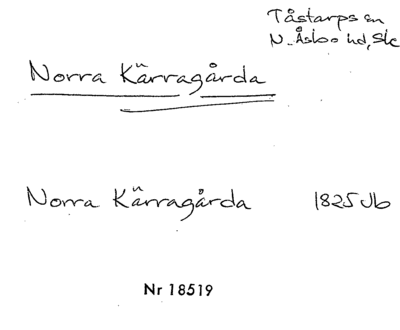 Tåstarps sn
N. Åsbo hd, Sk
Norra Kärragårda
Norra Kärragårda 1825 Jb
Nr 18519